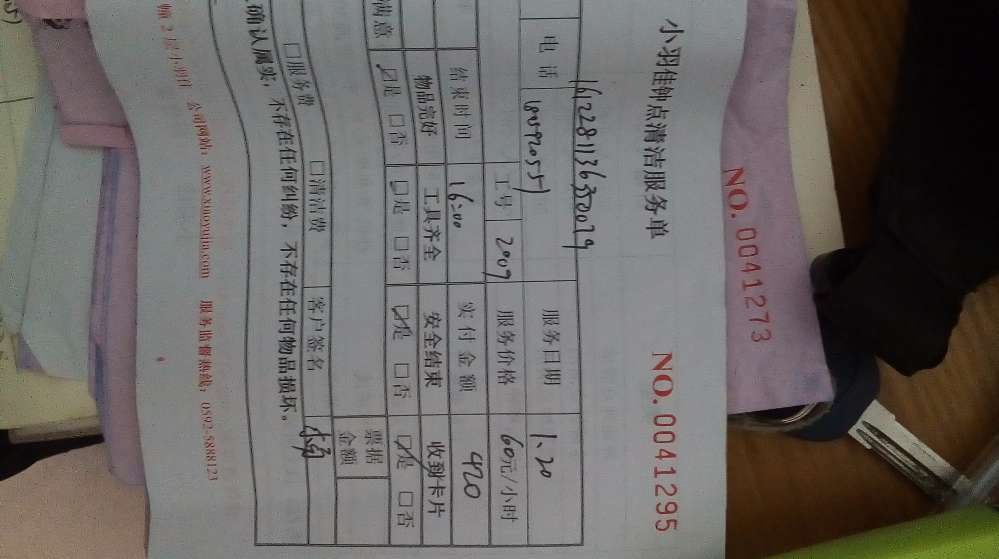 NO. 0041273
小羽佳钟点清洁服务单
NO. 0041295
电话 服务日期 1.20
工号 2009 服务价格 60元/小时
结束时间 16:00 实付金额 420
满意 物品完好 工具齐全 安全结束 收到卡片
是 否 是 否 是 否 是 否
票据金额
□服务费 □清洁费 客户签名
确认属实，不存在任何纠纷，不存在任何物品损坏。
幢2层小羽佳 公司网站：www.xiaoyujia.com 服务监督热线：0592-5888123